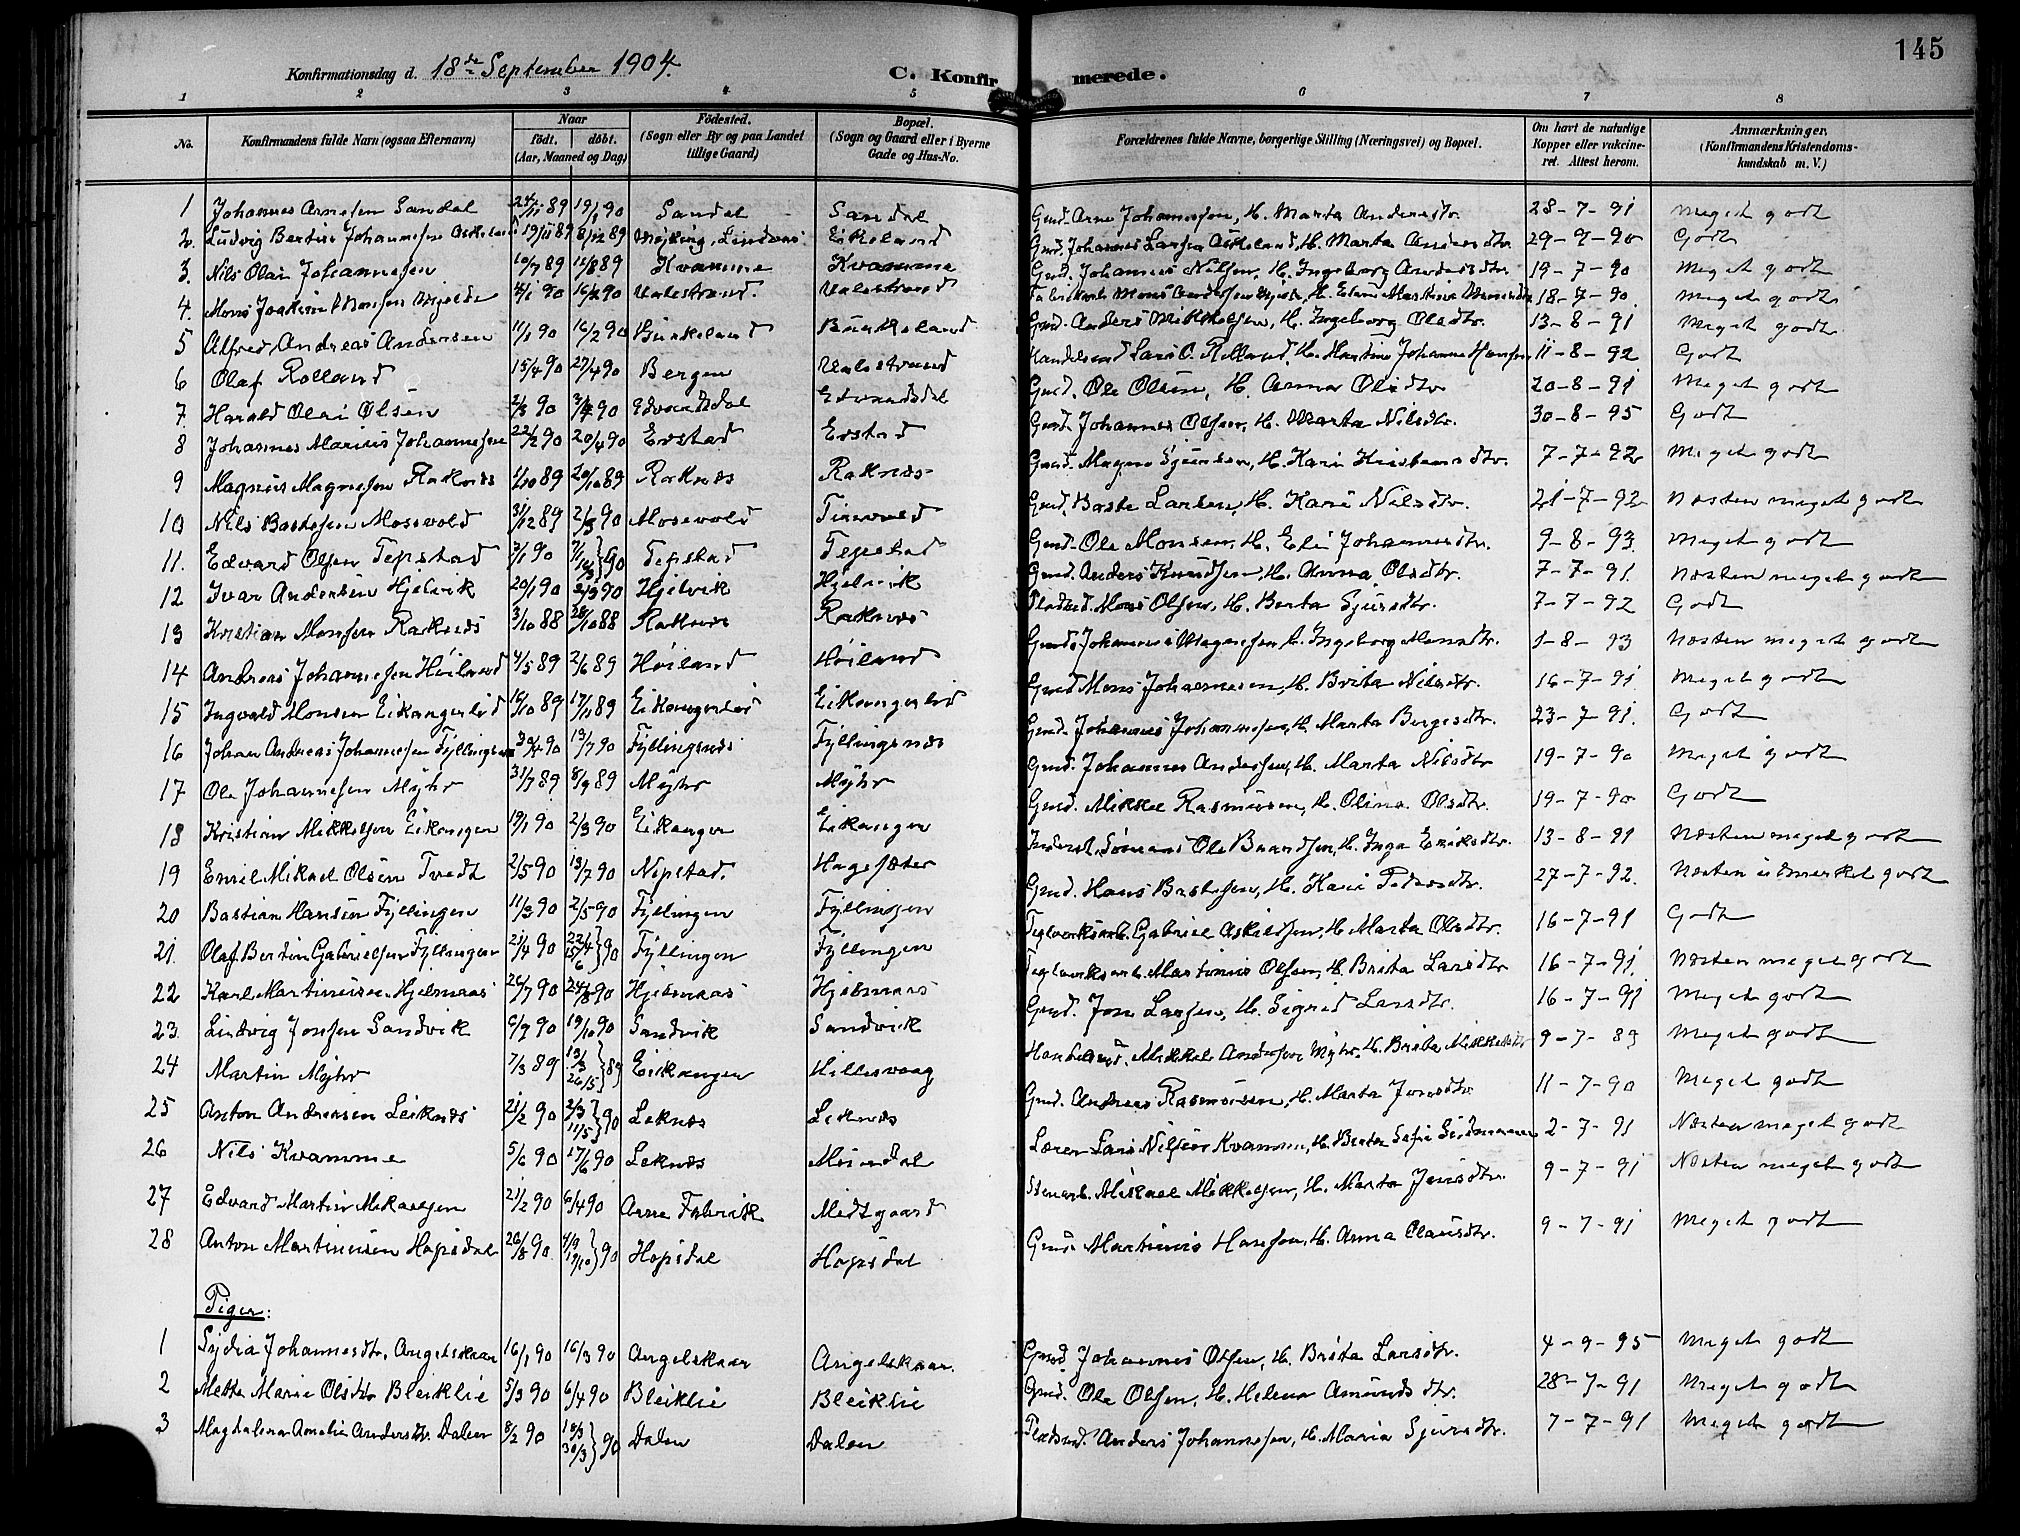 145
Konfirmationsdag d. 18de September 1904.
C. Konfirmerede.
1 2 3 4 5 6 7 8
No. Konfirmandens fulde Navn (ogsaa Efternavn) Naar födt. döbt. (Aar, Maaned og Dag) Födested. (Sogn eller By og paa Landet tillige Gaard) Bopæl. (Sogn og Gaard eller i Byerne Gade og Hus-No. Forældrenes fulde Navne, borgerlige Stilling (Næringsvei) og Bopæl. Om havt de naturlige Kopper eller vakcineret. Attest herom. Anmærkninger. (Konfirmandens Kristendomskundskab m. V.)
1 Johannes Arnesen Sandal 24/11 89 19/1 90 Sandal Sandal Gmd. Arne Johannesen, H. Marta Andersdtr. 28-7-91 Meget godt
2. Ludvig Bertin Johannesen 19/11 89 8/12 89 Lindaas Eikeland Gmd. Johannes Larsen H. Marta Andersdtr. 29-9-90 Godt
3. Nils Olai Johannesen 10/7 89 11/8 89 Kvamme Kvamme Gmd. Johannes Nilsen, H. Ingeborg Andersdtr. 19-7-90 Meget godt
4. Mons Joakim Monsen 16/2 90 Valestrand. Valestrand Mons Andersen H. Martina 18-7-90 Meget godt
5 Alfred Andreas Andersen 11/1 90 16/2 90 Birkeland Birkeland Gmd. Anders Mikkelsen, H. Ingeborg Olsdtr. 13-8-91 Meget godt
6 Olaf Rolland 15/4 90 27/4 90 Bergen Valestrand Handelsmd Lars O. Rolland, H. Martine Johanne Hansen 11-8-92 Godt
7. Harald Olai Olsen 2/3 90 90 Edvardsdal Edvardsdal Gmd. Ole Olsen, H. Anna Olsdtr 20-8-91 Meget godt
8 Johannes Marius Johannesen 22/2 90 20/4 90 Evstad Evstad Gmd. Johannes Olsen, H. Marta Nilsdtr. 30-8-95 Godt
9 Magnus Magnesen Raknes 1/10 89 20/10 89 Raknes Raknæs Gmd. Magne Sjursen, H. Kari Kristensdtr. 7-7-92 Meget godt
10 Nils Bastesen Mosevold 31/12 89 2/3 90 Mosevold Gmd. Baste Larsen, H. Kari Nilsdtr. 21-7-92 Næsten meget godt
11. Edvard Olsen Tepstad 2/1 90 90 Tepstad Tepstad Gmd. Ole Monsen, H. Eli Johannesdtr. 9-8-93 Meget godt
12 Ivar Andersen Hjelvik 20/1 90 2/3 90 Hjelvik Hjelvik Gmd. Anders Knudsen, H. Anna Olsdtr. 7-7-91 Næsten meget godt
13 Kristian Monsen Raknes 3/10 88 28/10 88 Raknes Raknæs Pladsmd. Mons Olsen, H. Berta Sjursdtr. 7-7-92 Godt
14 Andreas Johannesen Höiland 4/5 89 2/6 89 Höiland Höiland Gmd. Johannes Magnesen H. Ingeborg Monsdtr. 1-8-93 Næsten meget godt
15 Ingvald Monsen Eikangerlid 16/10 89 17/11 89 Eikangerlid Eikangerlid Gmd Mons Johannesen, H. Brita Nilsdtr. 16-7-91 Meget godt
16 Johan Andreas Johannesen Fyllingsnes 30/4 90 13/7 90 Fyllingsnes Fyllingsnes Gmd. Johannes Johannesen, H. Marta Bergesdtr. 23-7-91. Godt
17 Ole Johannesen Myhr 31/7 89 8/9 89 Myhr Myhr Gmd. Johannes Andersen, H. Marta Nilsdtr 19-7-90 Meget godt
18 Kristian Mikkelsen Eikanger 19/1 90 2/3 90 Eikanger Eikanger Gmd. Mikkel Rasmussen, H. Olina Olsdtr. 19-7-90 Godt
19 Emil Mikael Olsen Tvedt 2/5 90 13/7 90 Nepstad. Hagesæter Inderst, Sömand Ole Baardsen, H. Inga Eriksdtr. 13-8-91 Næsten meget godt
20 Bastian Hansen Fyllingen 11/3 90 2/5 90 Fyllingen Fyllingen Gmd. Hans Bastesen, H. Kari Pedersdtr. 27-7-92. Næsten udmerket godt
21. Olaf Bertin Gabrielsen Fyllingen 21/4 90 22/4 15/6 } 90 Fyllingen Fyllingen Teglverksarb. Gabriel Askildsen, H. Marta Olsdtr. 16-7-91 Godt
22 Karl Martinusen Hjelmaas 26/7 90 24/8 90 Hjelmaas Hjelmaas Teglverksarb. Martinus Olsen, H. Brita Larsdtr 16-7-91. Næsten meget godt
23. Ludvig Jonsen Sandvik 6/9 90 19/10 90 Sandvik Sandvik Gmd. Jon Larsen, H. Sigrid Larsdtr. 16-7-91 Meget godt
24 Martin Myhr 7/3 89 13/3 26/5 } 89 Eikanger Hillesvaag Handelsmd. Mikkel Andersen Myhr, H. Brita Mikkelsdtr 9-7-89 Meget godt
25 Anton Andreasen Leiknæs 21/2 90 2/3 11/5 } 90 Leknæs Leknæs Gmd. Andreas Rasmussen, H. Marta Jonsdtr. 11-7-90 Meget godt
26 Nils Kvamme 5/6 90 17/6 90 Leknæs Lærer Lars Nilsen Kvamme, H. Berta Sofie 2-7-91 Næsten meget godt
27 Edvard Martin Mikaelsen 21/2 90 6/4 90 Arne Fabrik Midtgaard Mikael Mikkelsen, H. Marta Jensdtr. 9-7-91 Næsten meget godt
28 Anton Martinusen Hopsdal 26/8 90 4/9 12/10 } 90 Hopsdal Hopsdal Gmd. Martinus Hansen, H. Anna Clausdtr. 9-7-91 Meget godt
Piger:
1 Lydia Johannesdtr. Angelskaar 16/1 90 16/3 90 Angelskaar Angelskaar. Gmd. Johannes Olsen, H. Brita Larsdtr. 4-9-95 Meget godt
2 Mette Marie Olsdtr Bleiklie 5/3 90 6/4 90 Bleiklie Bleiklie Gmd. Ole Olsen, H. Helena Amundsdtr. 28-7-91 Meget godt
3 Magdalena Amalia Andersdtr. Dalen 8/2 90 18/3 30/3 } 90 Dalen Dalen Pladsmd. Anders Johannesen, H. Maria Sjursdtr. 7-7-91 Meget godt